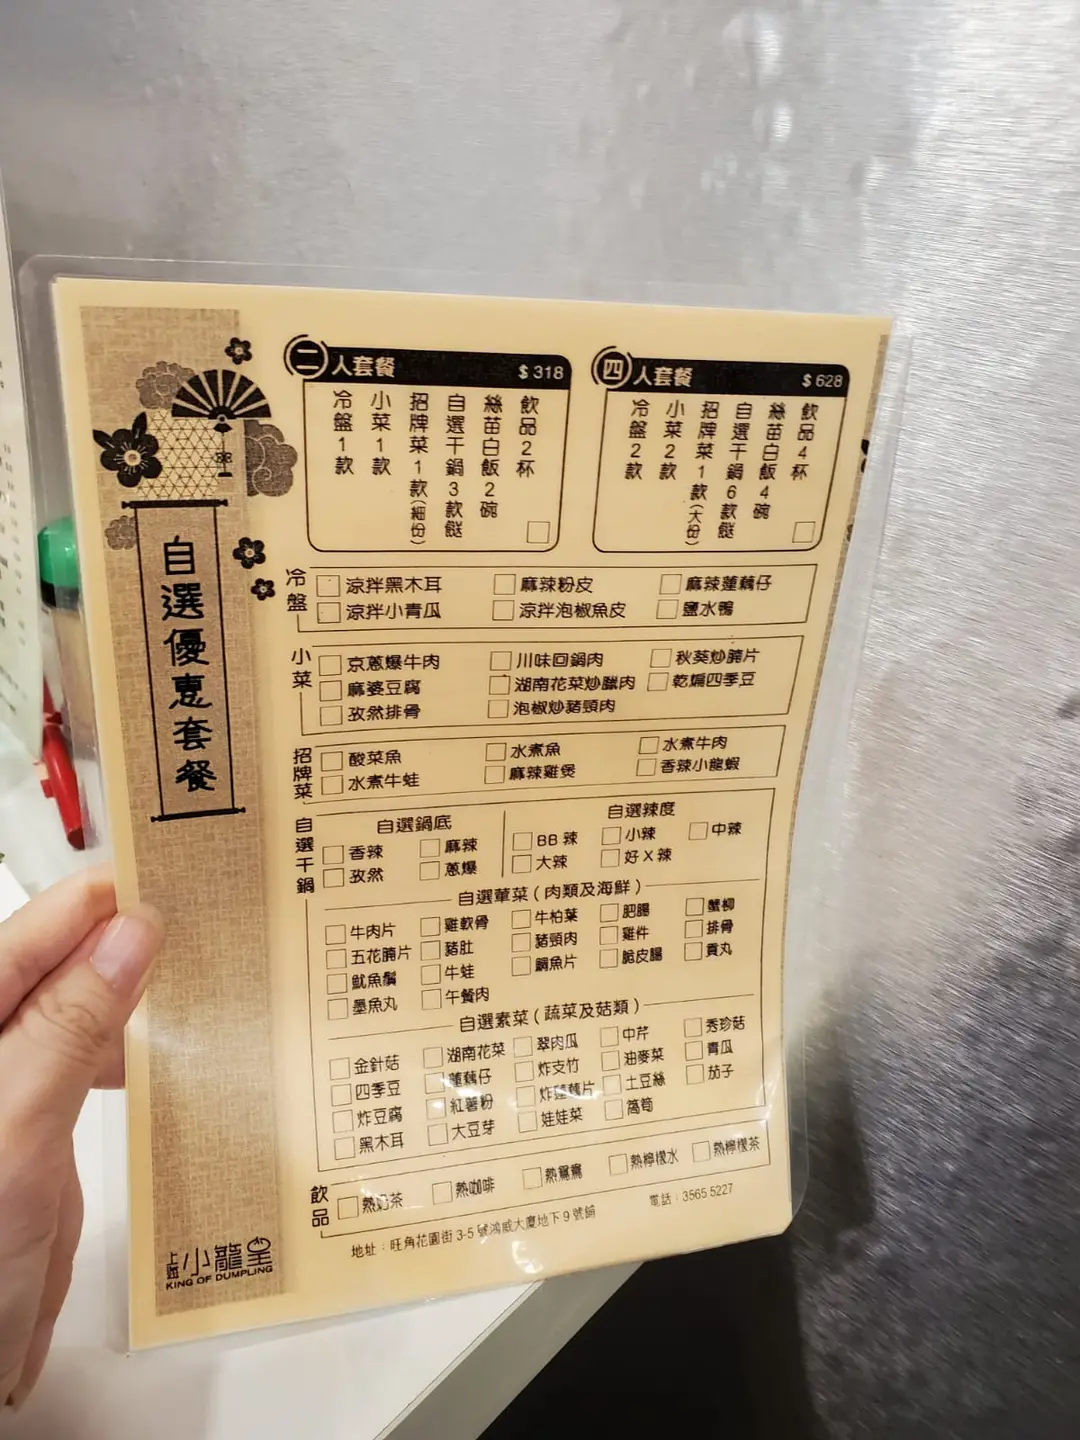 自選優惠套餐
二人套餐 $318
冷盤1款
小菜1款
招牌菜1款(細份)
自選干鍋3款餸
絲苗白飯2碗
飲品2杯
四人套餐 $628
冷盤2款
小菜2款
招牌菜1款(大份)
自選干鍋6款餸
絲苗白飯4碗
飲品4杯
冷盤
涼拌黑木耳 麻辣粉皮 麻辣蓮藕仔
涼拌小青瓜 涼拌泡椒魚皮 鹽水鴨
小菜
京蔥爆牛肉 川味回鍋肉 秋葵炒腩片
麻婆豆腐 湖南花菜炒臘肉 乾煸四季豆
孜然排骨 泡椒炒豬頸肉
招牌菜
酸菜魚 水煮魚 水煮牛肉
水煮牛蛙 麻辣雞煲 香辣小龍蝦
自選干鍋
自選鍋底 自選辣度
香辣 麻辣 BB辣 小辣 中辣
孜然 蔥爆 大辣 好X辣
自選葷菜(肉類及海鮮)
牛肉片 雞軟骨 牛柏葉 肥腸 蟹柳
五花腩片 豬肚 豬頸肉 雞件 排骨
魷魚鬚 牛蛙 鯛魚片 脆皮腸 貢丸
墨魚丸 午餐肉
自選素菜(蔬菜及菇類)
金針菇 湖南花菜 翠肉瓜 中芹 秀珍菇
四季豆 蓮藕仔 炸支竹 油麥菜 青瓜
炸豆腐 紅薯粉 炸蓮藕片 土豆絲 茄子
黑木耳 大豆芽 娃娃菜 萵筍
飲品
熱奶茶 熱咖啡 熱鴛鴦 熱檸檬水 熱檸檬茶
地址：旺角花園街3-5號鴻威大廈地下9號鋪 電話：3565 5227
小龍皇
KING OF DUMPLING